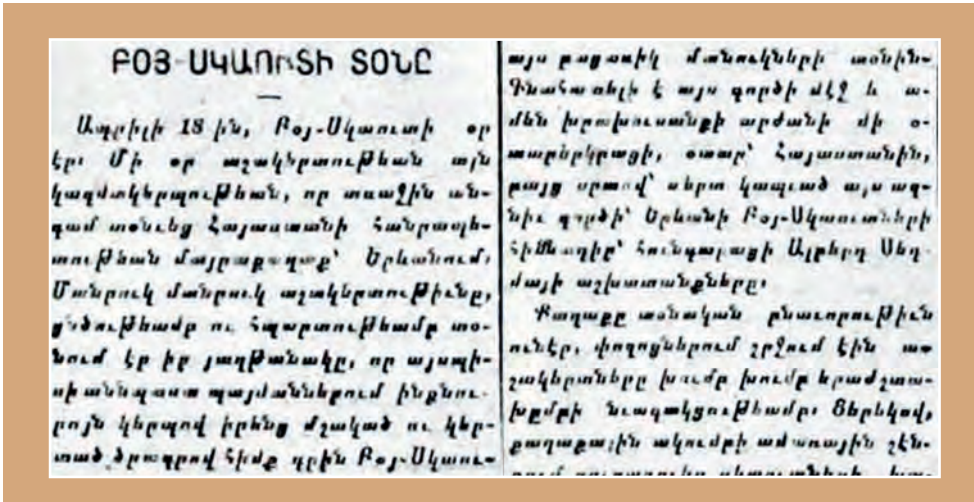 ԲՕՅ-ՍԿԱՈՒՏԻ ՏՕՆԸ
Ապրիլի 18 ին, Բօյ-Սկաուտի օր
էր։ Մի օր աշակերտութեան այն
կազմակերպութեան, որ առաջին ան-
գամ տօնուեց Հայաստանի Հանրապե-
տութեան մայրաքաղաք՝ Երևանում։
Մանրուկ մանրուկ աշակերտութիւնը,
ցնծութեամբ ու հպարտութեամբ տօ-
նում էր իր յաղթանակը, որ այսպի-
սի աննպաստ պայմաններում ինքնու-
րոյն կերպով իրենց մշակած ու կեր-
տած ծրագրով հիմք դրին Բօյ-Սկաու-
այս բացառիկ մանուկների տօնին։
Գնահատելի է այս գործի մէջ և ա-
մեն խրախուսանքի արժանի մի օ-
տարերկրացի, օտար՝ Հայաստանին,
բայց սրտով՝ սերտ կապւած այս ազ-
նիւ գործի՝ Երևանի Բօյ-Սկաուտների
հիմնադիր՝ հունգարացի Ալբերդ Սեղ-
մայի աշխատանքները։
Քաղաքը տօնական բնաւորութիւն
ունէր, փողոցներում շրջում էին աշ
շակերտները խումբ խումբ երաժշտա-
խըմբի նւագակցութեամբ։ Ցերեկով,
քաղաքային ակումբի ամառային շէն-